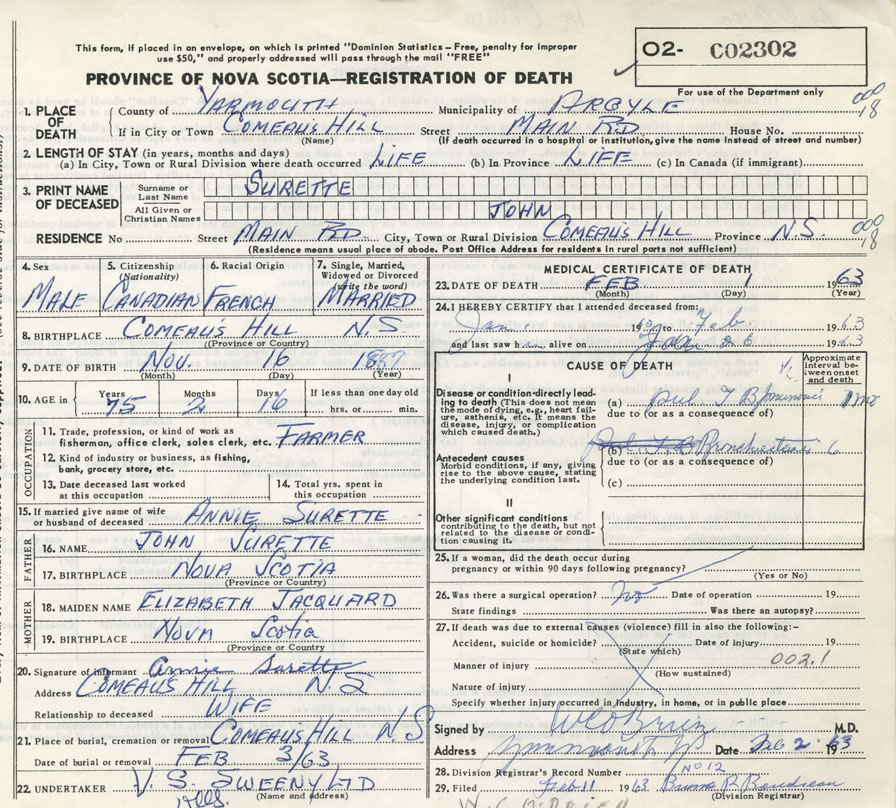 This form, if placed in an envelope, on which is printed "Dominion Statistics – Free, penalty for improper
use $50," and properly addressed will pass through the mail "FREE"
PROVINCE OF NOVA SCOTIA—REGISTRATION OF DEATH
O2- C02302
For use of the Department only
1. PLACE OF DEATH
County of YARMOUTH Municipality of ARGYLE
If in City or Town COMEAU'S HILL Street MAIN RD House No.
(Name) (If death occurred in a hospital or institution, give the name instead of street and number)
000
18
2. LENGTH OF STAY (in years, months and days)
(a) In City, Town or Rural Division where death occurred LIFE (b) In Province LIFE (c) In Canada (if immigrant)
3. PRINT NAME OF DECEASED
Surname or Last Name SURETTE
All Given or Christian Names JOHN
RESIDENCE No Street MAIN RD City, Town or Rural Division COMEAU'S HILL Province N.S.
000
18
(Residence means usual place of abode. Post Office Address for residents in rural parts not sufficient)
4. Sex MALE
5. Citizenship (Nationality) CANADIAN
6. Racial Origin FRENCH
7. Single, Married, Widowed or Divorced (write the word) MARRIED
8. BIRTHPLACE COMEAU'S HILL N.S
(Province or Country)
9. DATE OF BIRTH NOV. 16 1887
(Month) (Day) (Year)
10. AGE in Years 75 Months 2 Days 16 If less than one day old
hrs. or min.
OCCUPATION
11. Trade, profession, or kind of work as
fisherman, office clerk, sales clerk, etc. FARMER
12. Kind of industry or business, as fishing,
bank, grocery store, etc.
13. Date deceased last worked
at this occupation
14. Total yrs. spent in
this occupation
15. If married give name of wife
or husband of deceased ANNIE SURETTE
FATHER
16. NAME JOHN SURETTE
17. BIRTHPLACE NOVA SCOTIA
(Province or Country)
MOTHER
18. MAIDEN NAME ELIZABETH JACQUARD
19. BIRTHPLACE NOVA SCOTIA
(Province or Country)
20. Signature of informant Annie Surette
Address COMEAU'S HILL N.S
Relationship to deceased WIFE
21. Place of burial, cremation or removal COMEAU'S HILL N S
Date of burial or removal FEB 3/63
22. UNDERTAKER V. S. SWEENY LTD
(Name and address)
MEDICAL CERTIFICATE OF DEATH
23. DATE OF DEATH FEB 1 1963
(Month) (Day) (Year)
24. I HEREBY CERTIFY that I attended deceased from:
Jan. 19 to Feb. 1963
and last saw him alive on Jan 26 1963
CAUSE OF DEATH
Approximate interval between onset and death
I
Disease or condition directly leading to death (This does not
the mode of dying, e.g., heart failure, asthenia, etc. It means the
disease, injury, or complication
which caused death.)
(a)
due to (or as a consequence of)
Antecedent causes
Morbid conditions, if any, giving
rise to the above cause, stating
the underlying condition last.
(b)
due to (or as a consequence of)
(c)
II
Other significant conditions
contributing to the death, but not
related to the disease or condition causing it.
25. If a woman, did the death occur during
pregnancy or within 90 days following pregnancy?
(Yes or No)
26. Was there a surgical operation? no Date of operation 19
State findings Was there an autopsy?
27. If death was due to external causes (violence) fill in also the following:–
Accident, suicide or homicide? Date of injury 19
(State which)
Manner of injury 002.1
(How sustained)
Nature of injury
Specify whether injury occurred in industry, in home, or in public place
Signed by M.D.
Address Date Feb 2 1963
28. Division Registrar's Record Number No 12
29. Filed Feb 11 1963
(Division Registrar)